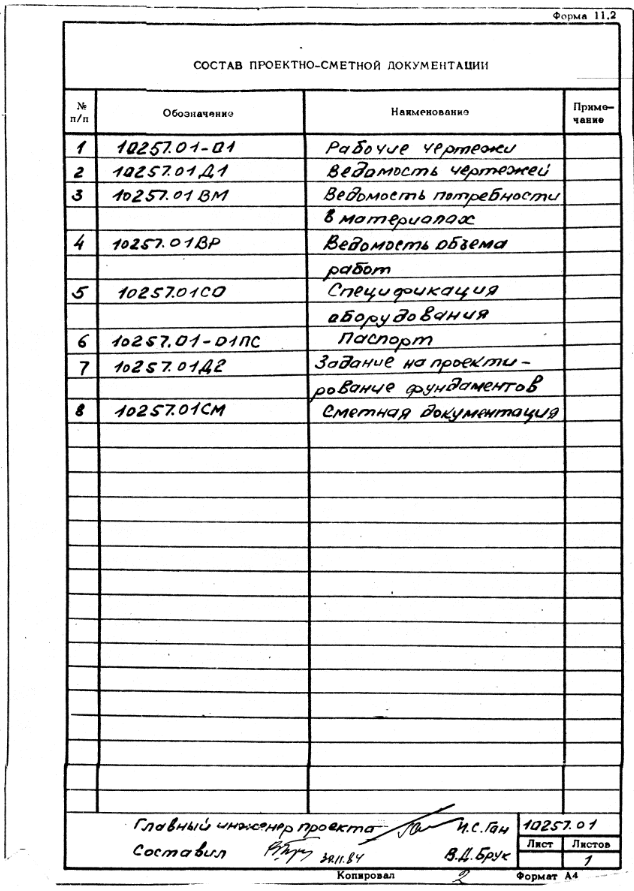 Форма 11.2
СОСТАВ ПРОЕКТНО-СМЕТНОЙ ДОКУМЕНТАЦИИ
№ п/п Обозначение Наименование Приме-чание
1 10257.01-01 Рабочие чертежи
2 10257.01Д1 Ведомость чертежей
3 10257.01ВМ Ведомость потребности
в материалах
4 10257.01ВР Ведомость объема
работ
5 10257.01СО Спецификация
оборудования
6 10257.01-01ПС Паспорт
7 10257.01Д2 Задание на проекти-
рование фундаментов
8 10257.01СМ Сметная документация
Главный инженер проекта И.С.Ган 10257.01
Составил 30.11.84 В.Д.Брук Лист Листов
1
Копировал 2 Формат А4